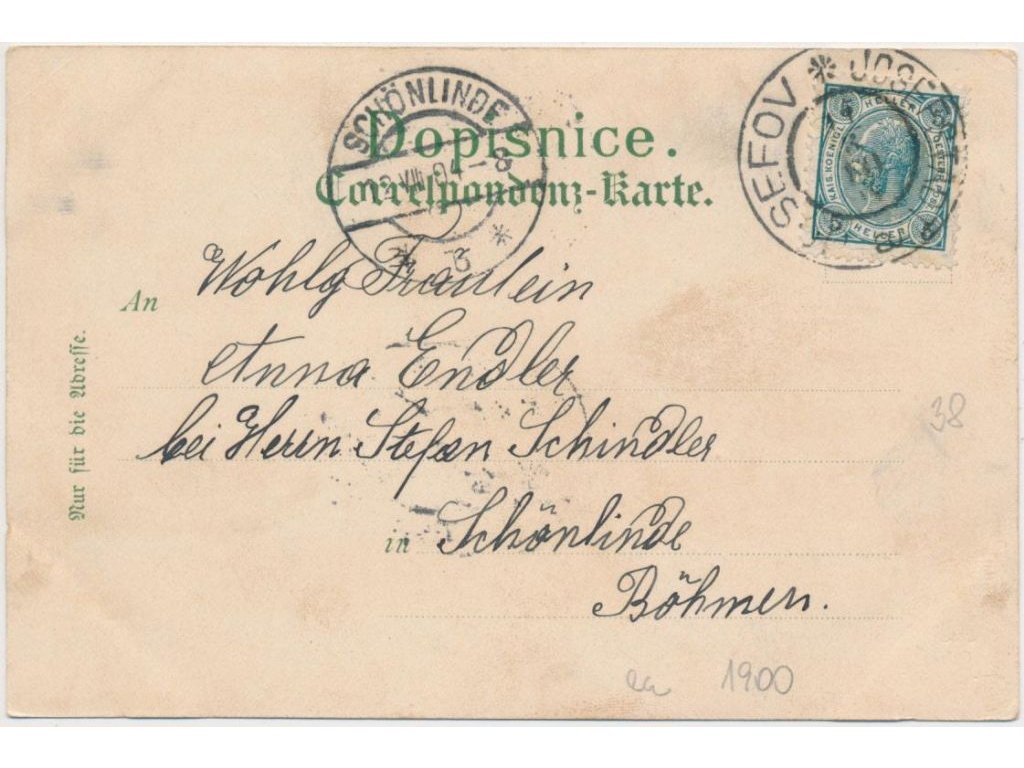 Dopisnice.
Correspondenz-Karte.
SCHÖNLINDE
VIII 04
* a *
SEFOV * JOSEF
5 HELLER
KAIS. KOENIGL.
5 HELLER
Wohlg Fräulein
An
Anna Endler
bei Herrn Stefan Schindler
in Schönlinde
Böhmen.
Nur für die Adresse.
38
ca 1900